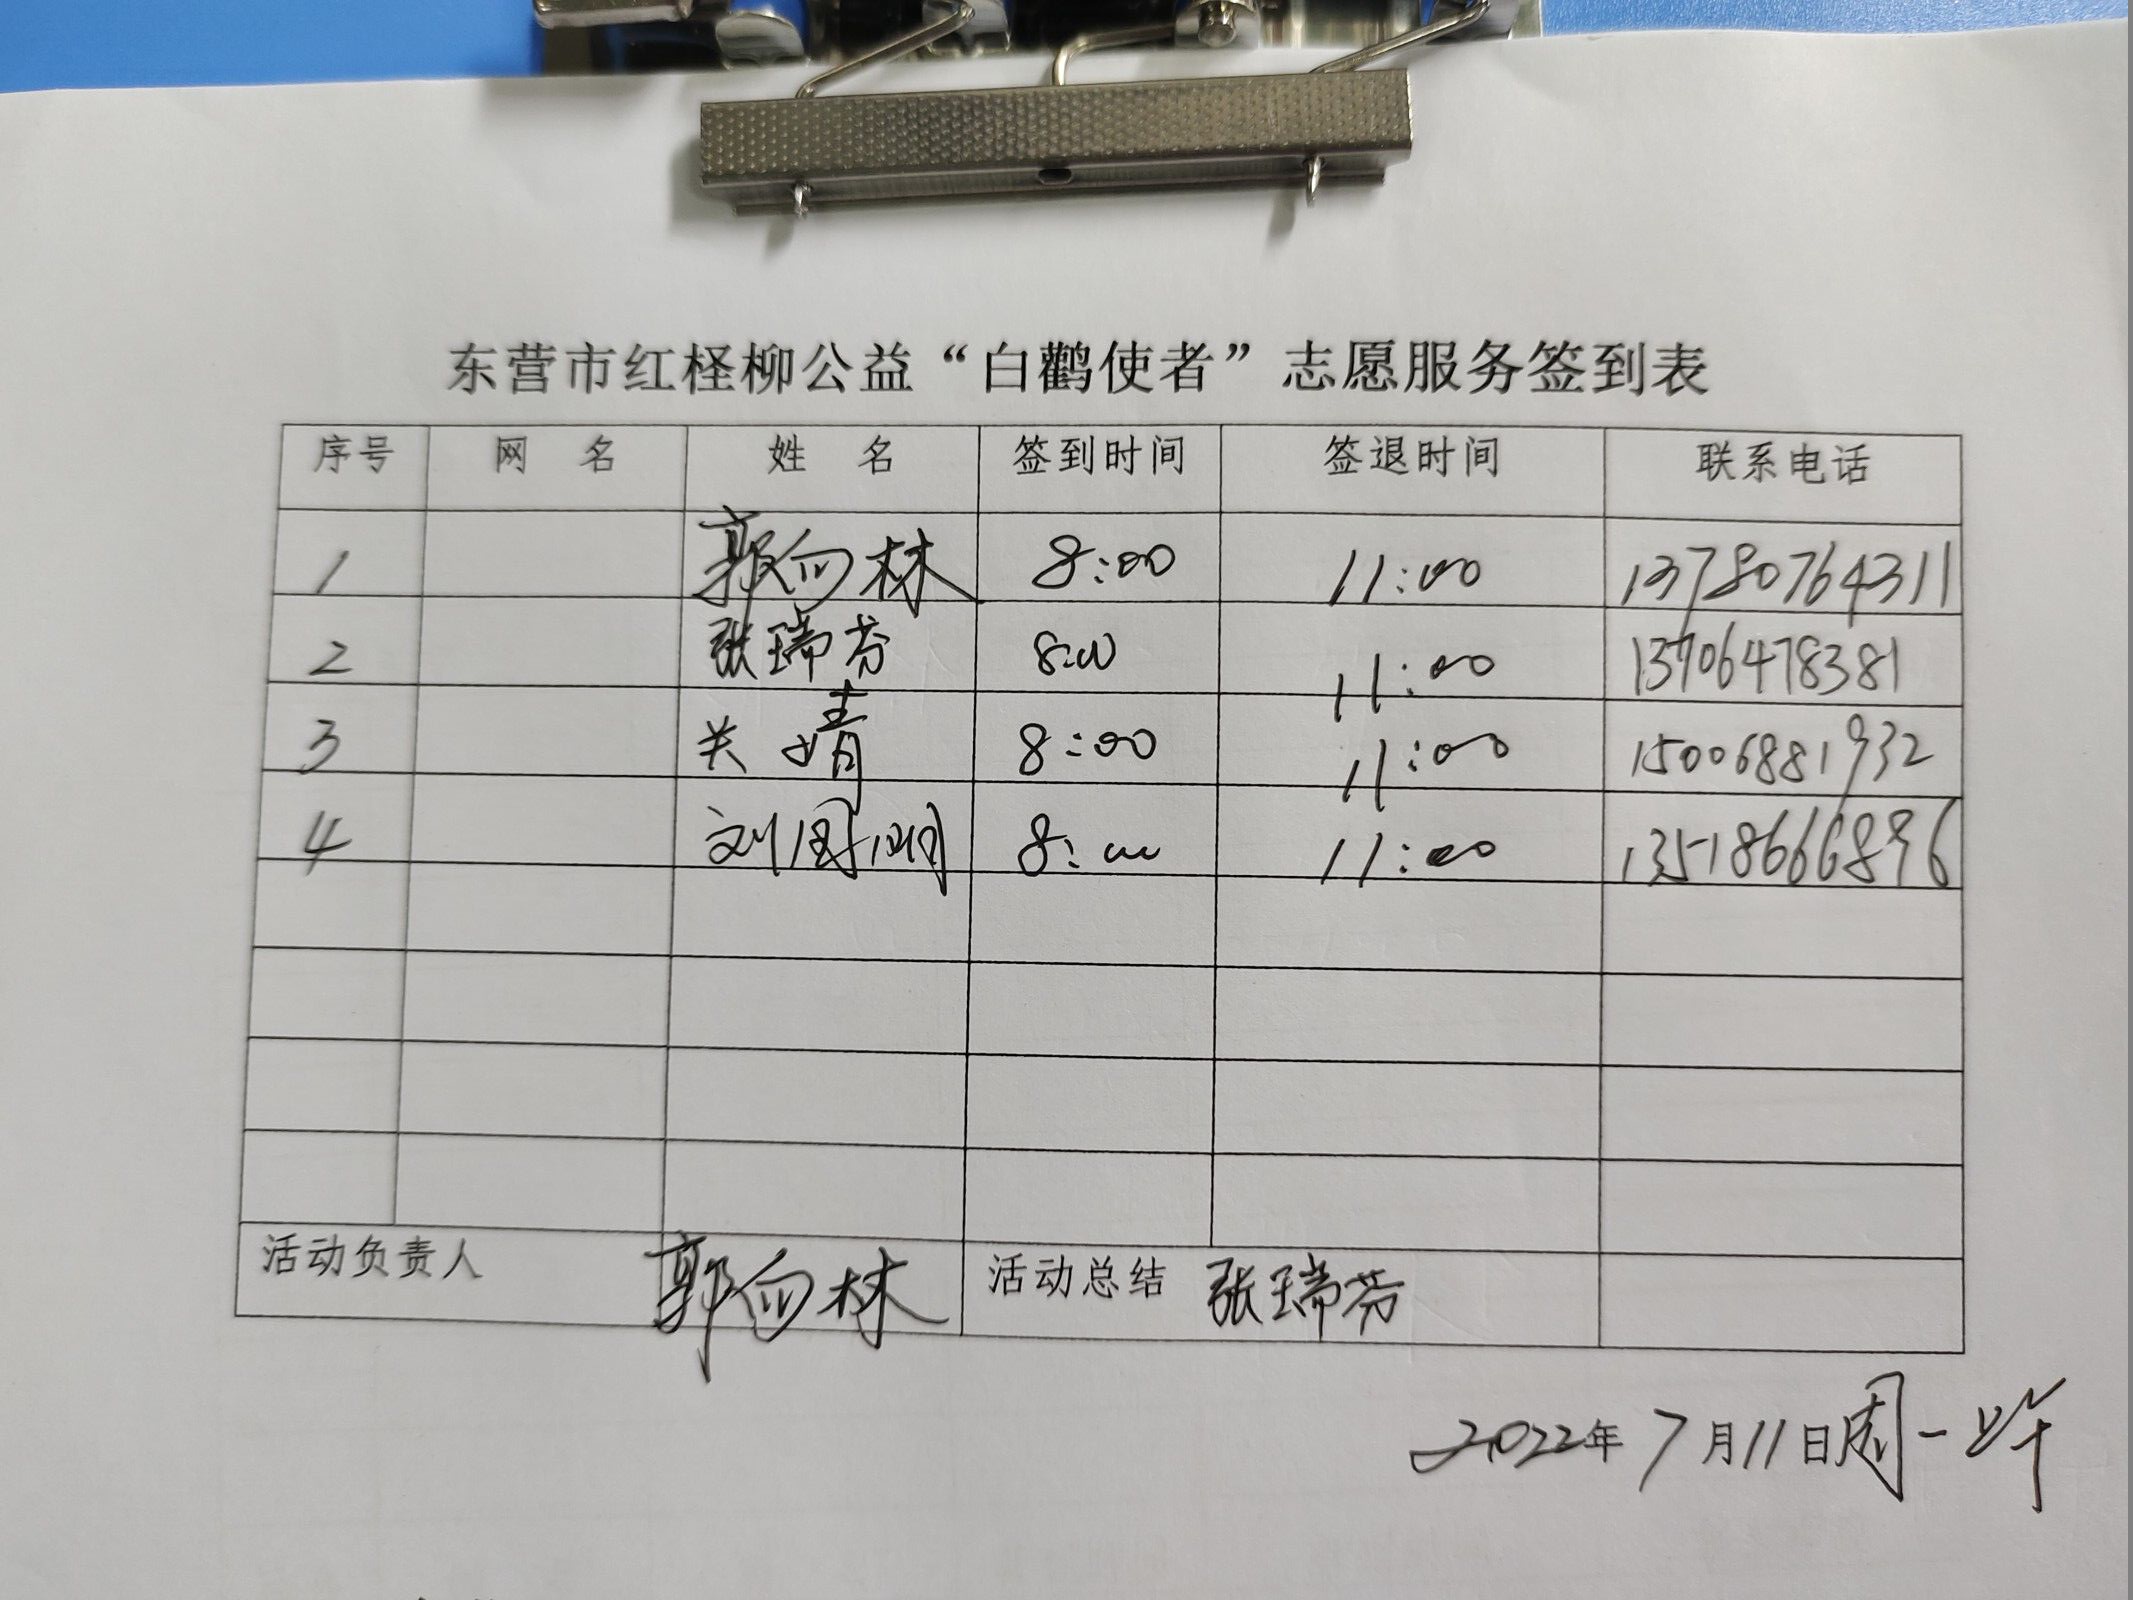 东营市红柽柳公益“白鹳使者”志愿服务签到表
序号 网 名 姓 名 签到时间 签退时间 联系电话
1 郭向林 8:00 11:00 13780764311
2 张瑞芬 8:00 11:00 13706478381
3 关婧 8:00 11:00 15006881932
4 刘国明 8:00 11:00 13518666896
活动负责人 郭向林 活动总结 张瑞芬
2022年7月11日周一上午